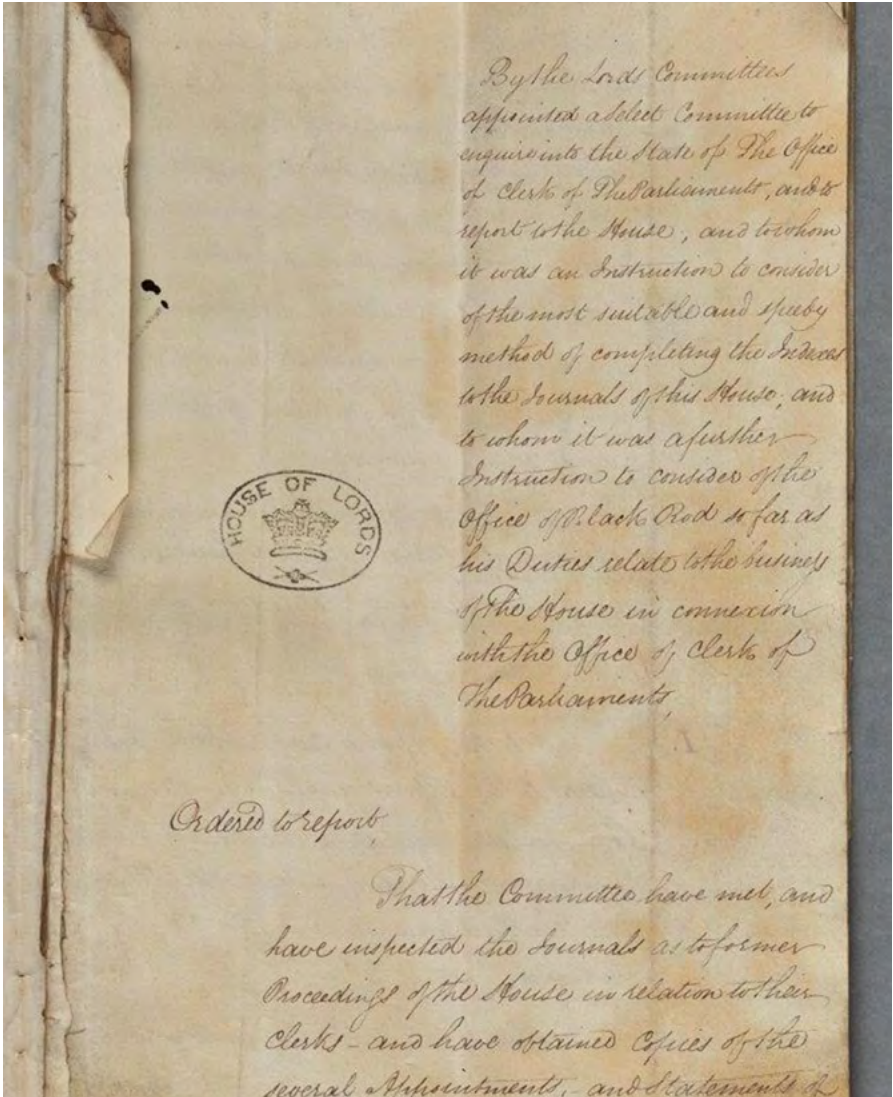 By the Lords Committees
appointed a Select Committee to
enquire into the State of The Office
of Clerk of The Parliaments, and to
report to the House, and to whom
it was an Instruction to consider
of the most suitable and speedy
method of completing the Indexes
to the Journals of this House; and
to whom it was a further
Instruction to consider of the
Office of Black Rod so far as
his Duties relate to the business
of The House in connexion
with the Office of Clerk of
The Parliaments,
HOUSE OF LORDS
Ordered to report,
That the Committee have met, and
have inspected the Journals as to former
Proceedings of the House in relation to their
Clerks - and have obtained Copies of the
several Appointments, - and Statements of